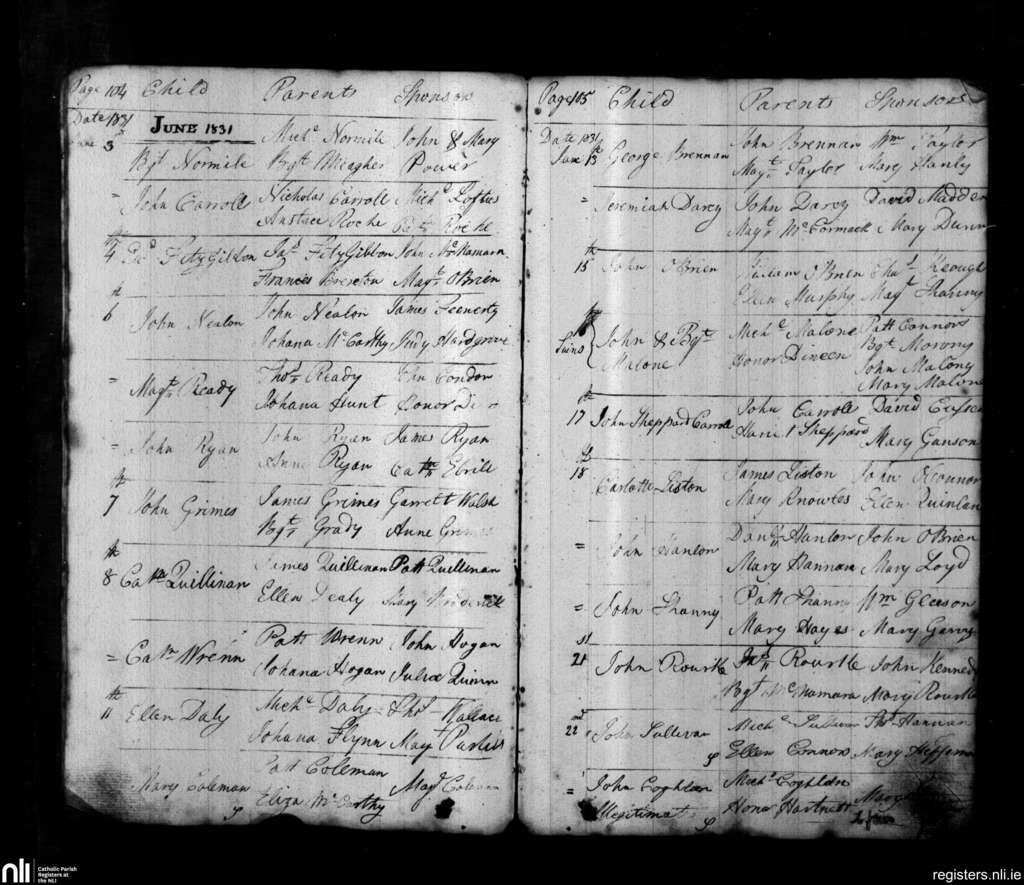 Page 104 Child Parents Sponsors
Date 1831
JUNE 1831
June 3 Michl Normile John & Mary
Bgt Normile Bgt Meagher Power
= John Carroll Nicholas Carroll Michl Loftus
Anstace Roche Roche
4th FitzGibbon Jas FitzGibbon John McNamara
Frances Brereton Margt OBrien
6th John Nealon John Nealon James Feenerty
Johana McCarthy Judy Hardgrove
= Margt Ready Thos Ready John Condon
Johana Hunt Conor
= John Ryan John Ryan James Ryan
Anne Ryan Cath Ebrill
7th John Grimes James Grimes Garrett Walsh
Bgt Grady Anne Grimes
8th Cath Quillinan James Quillinan Patt Quillinan
Ellen Dealy Mary Broderick
= Cath Wrenn Patt Wrenn John Hogan
Johana Hogan Julia Quinn
11th Ellen Daly Michl Daly Thos Wallace
Johana Flynn Margt
Mary Coleman Patt Coleman Coleman
Eliza McCarthy
Page 105 Child Parents Sponsors
Date 1831
June 13th George Brennan John Brennan Wm Taylor
Margt Taylor Mary Hanly
= Jeremiah Darcy John Darcy David Madden
Margt McCormack Mary Dunn
15th John OBrien William OBrien Thos Keough
Ellen Murphy Margt Thanny
John & Bgt Michl Malone Patt Connors
Malone Honor Dineen Bgt Morony
John Malony
Mary Malone
17th John Sheppard Carroll John Carroll David
Harriet Sheppard Mary Ganson
18th Carlotte Liston James Liston John OConnor
Mary Knowles Ellen Quinlan
= John Hanlon Danl Hanlon John OBrien
Mary Hannan Mary Loyd
= John Thanny Patt Thanny Wm Gleeson
Mary Hayes Mary
21st John Rourke Rourke John Kennedy
Bgt McNamara Mary Rourke
22nd John Sullivan Michl Sullivan Thos Hannan
Ellen Connors Mary Heffernan
= John Coghlan Michl Coghlan
Illegitimate Hona Hartnett Mary
nli Catholic Parish
Registers at
the NLI
registers.nli.ie